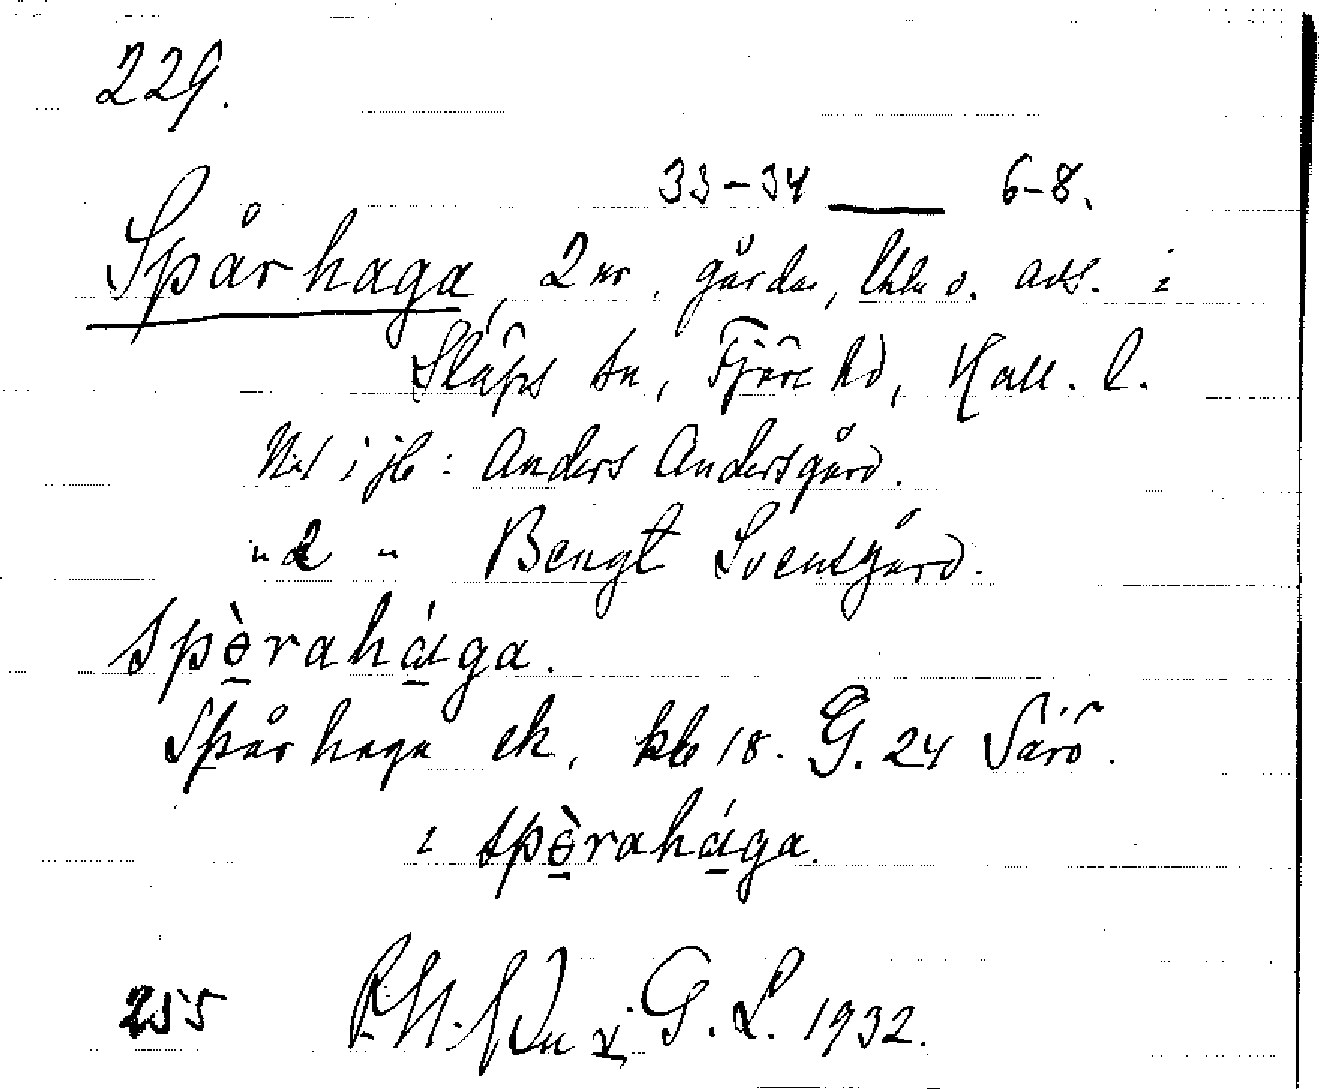 229.
33-34 — 6-8.
Spårhaga, 2 nr, gårdar, lhh o. avs. i
Släps sn, Fjäre hd, Hall. l.
N:o 1 i jb: Anders Andersgård.
" 2 " Bengt Svensgård.
spə̀rahága.
Spårhaga ek. kbl 18. G. 24 Särö.
i spə̀rahága.
255 G. L. 1932.